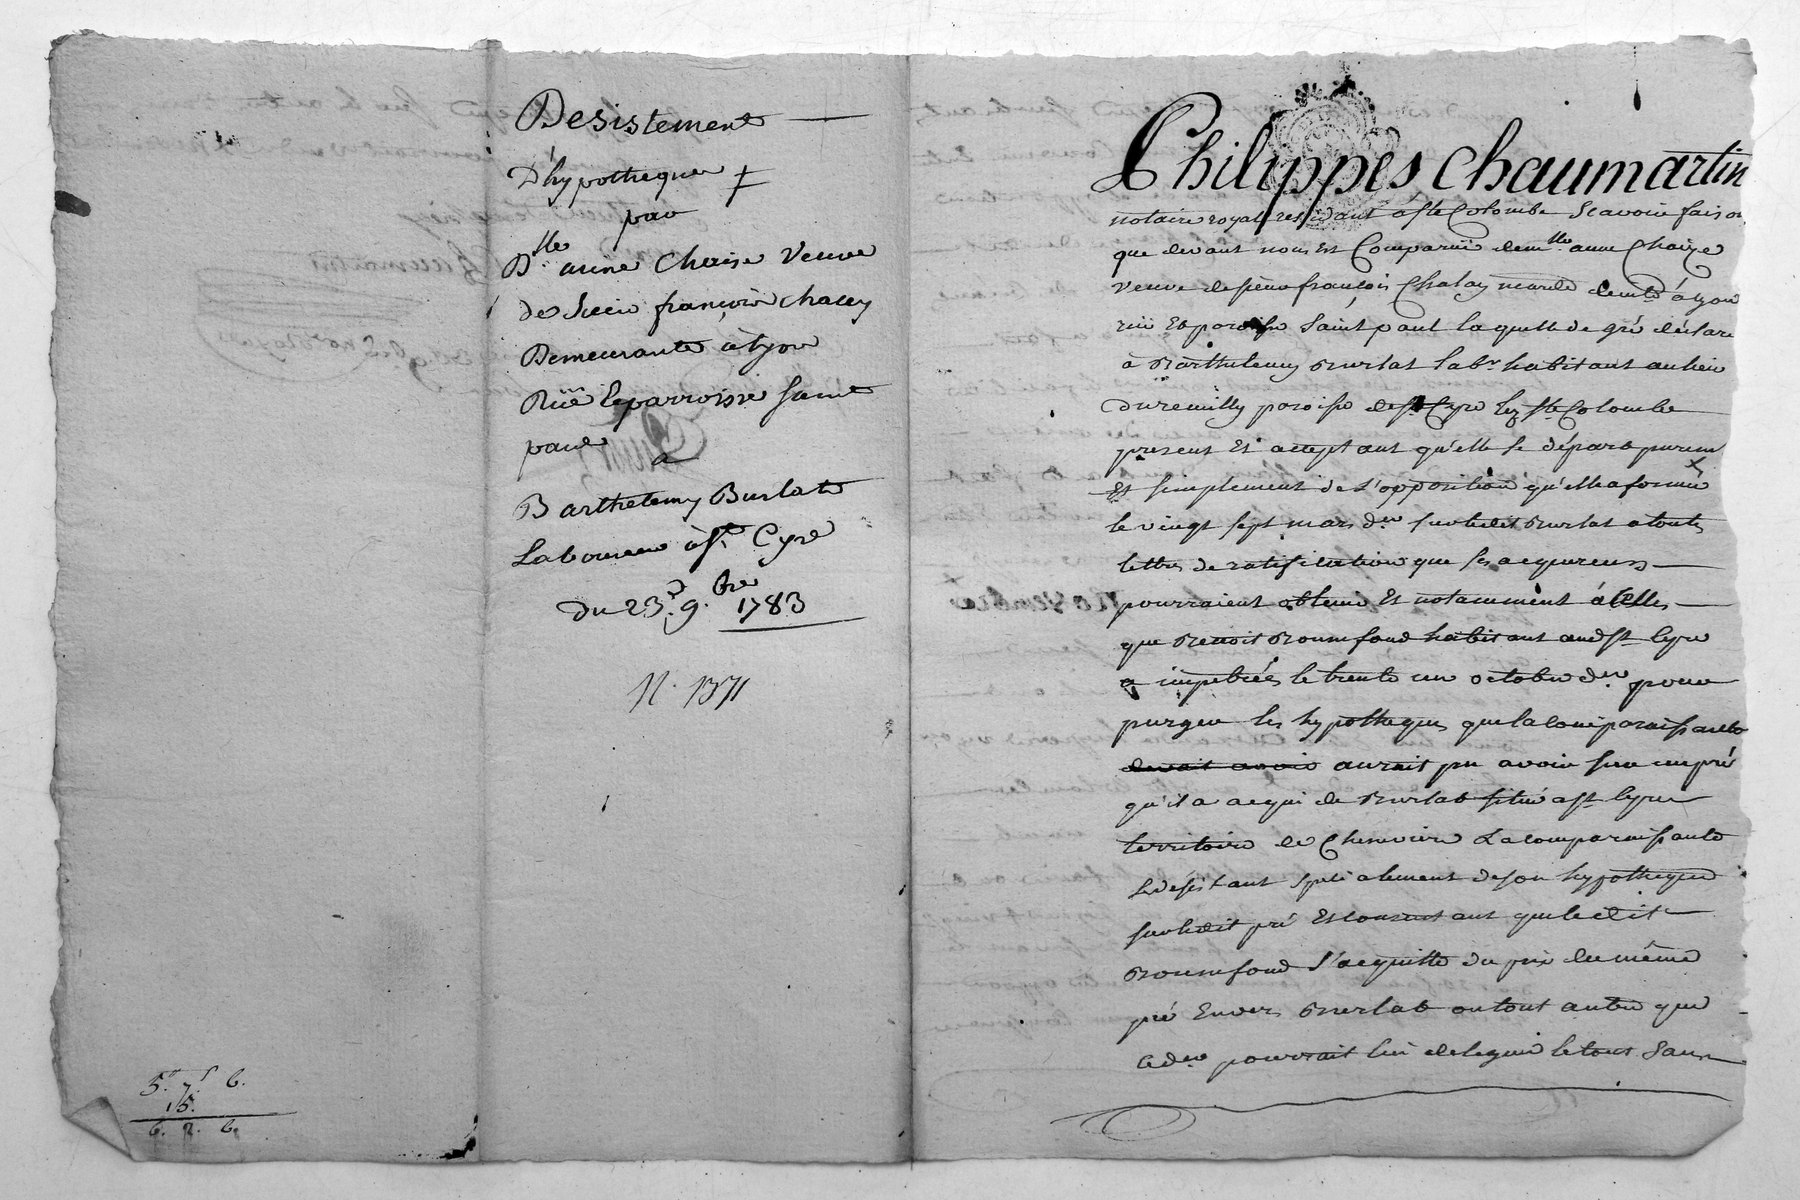 Desistement
D'hypotheque
par
Dlle anne Chaise Veuve
de Sieur françois Chaley
Demeurante a Lyon
Rüe & parroisse Saint
paul
a
Barthelemy Burlat
Laboureur à St Cyre
du 23. 9.bre 1783
N. 1371
5. 7. 6.
15.
6. 2. 6.
Philippes Chaumartin
notaire royal residant a Ste Colombe Scavoir faison
que devant nous Est Comparüe demlle anne Chaize
veuve de sieur françois Chalay marchd demte a Lyon
rüe Et paroisse Saint paul laquelle de gré déclare
à Barthelemy Burlat labr habitant au lieu
du remilly paroisse de St Cyre lez Ste Colombe
present Et acceptant qu'elle se départ purem
Et simplement de l'opposition qu'elle a formée
le vingt sept mars der sur ledit Burlat a toutes
lettres de ratification que ses acquereurs
pourraient obtenir Et notamment à celles
que Benoit Bonnefond habitant audt St Cyre
a impétrées le trente un octobre der pour
purger les hypotheques que la comparaissante
devait avoir aurait pu avoir sur un pré
qu'il a acquis de Burlat situé a St Cyre
territoire de Chenevière La comparaissante
se désistant spécialement de son hypotheque
sur ledit pré Et consentant que ledit
Bonnefond s'acquitte du prix du même
pré Envers Burlat ou tout autre que
ce der pourrait lui deleguer le tout Sans